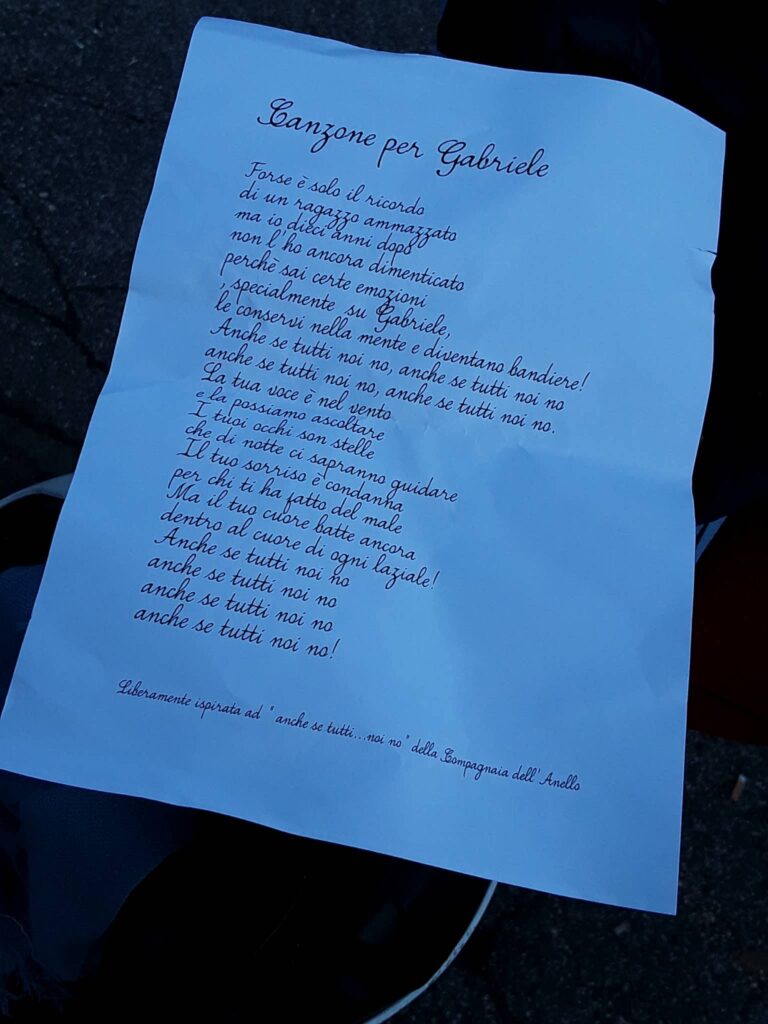 Canzone per Gabriele
Forse è solo il ricordo
di un ragazzo ammazzato
ma io dieci anni dopo
non l'ho ancora dimenticato
perchè sai certe emozioni
, specialmente su Gabriele,
le conservi nella mente e diventano bandiere!
Anche se tutti noi no, anche se tutti noi no
anche se tutti noi no, anche se tutti noi no.
La tua voce è nel vento
e la possiamo ascoltare
I tuoi occhi son stelle
che di notte ci sapranno guidare
Il tuo sorriso è condanna
per chi ti ha fatto del male
Ma il tuo cuore batte ancora
dentro al cuore di ogni laziale!
Anche se tutti noi no
anche se tutti noi no
anche se tutti noi no
anche se tutti noi no!
Liberamente ispirata ad " anche se tutti...noi no" della Compagnaia dell'Anello